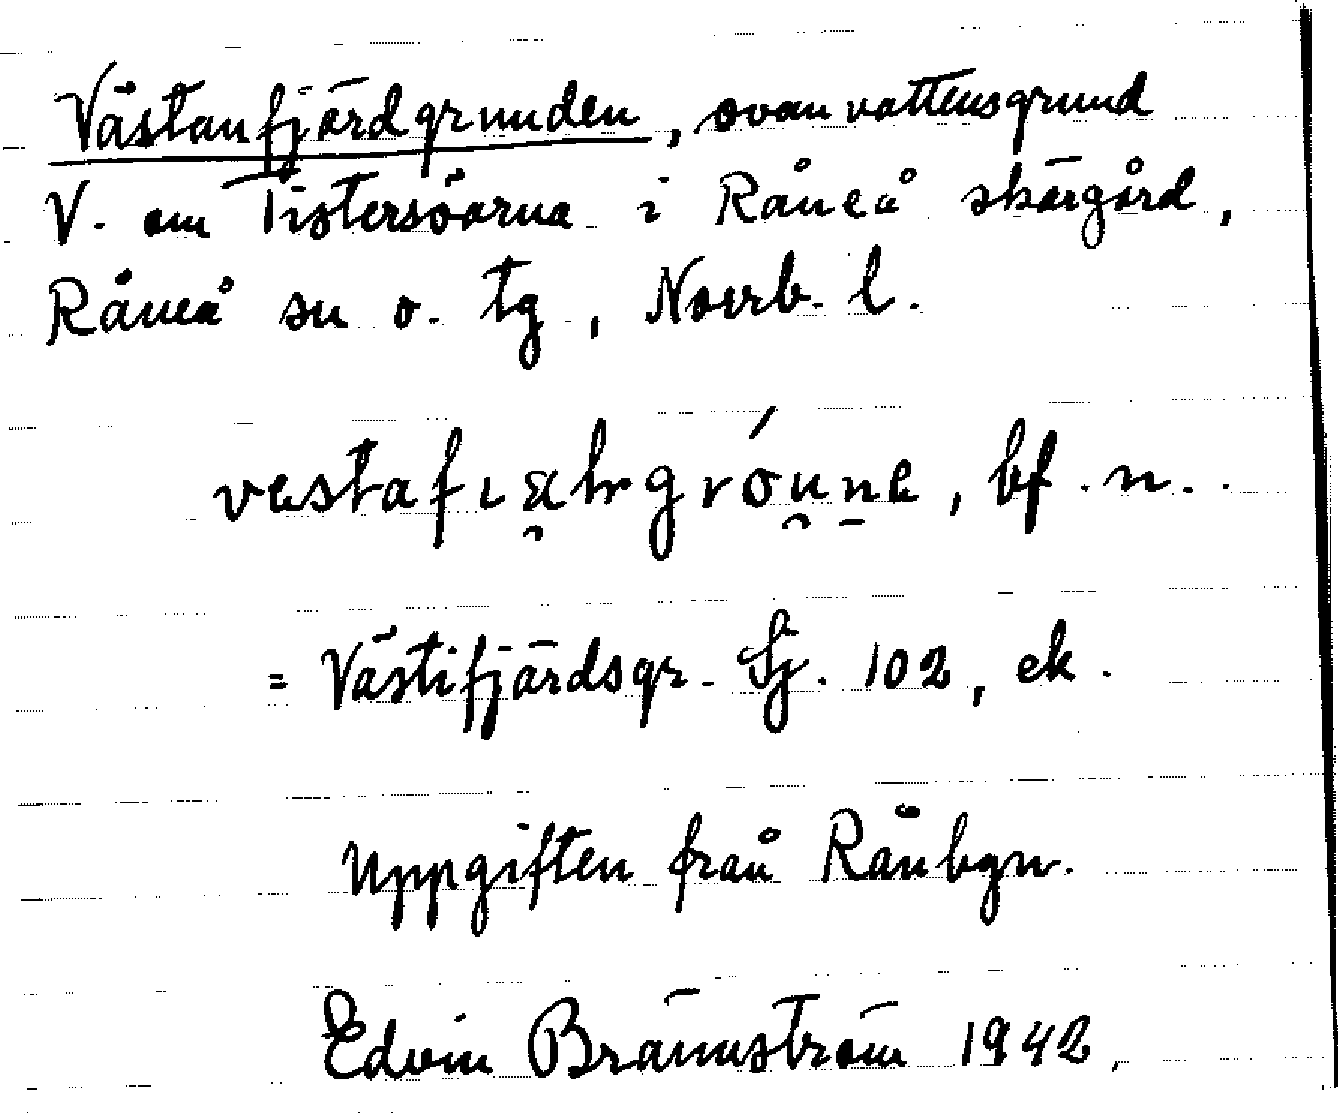 Västanfjärdgrunden, ovanvattensgrund
V. om Tistersöarna i Råneå skärgård,
Råneå sn o. tg, Norrb. l.
vestafιæhrgróu̯n̠e, bf. n..
= Västifjärdsgr. Sj. 102, ek.
Uppgiften från Rånbgn.
Edvin Brännström 1942.